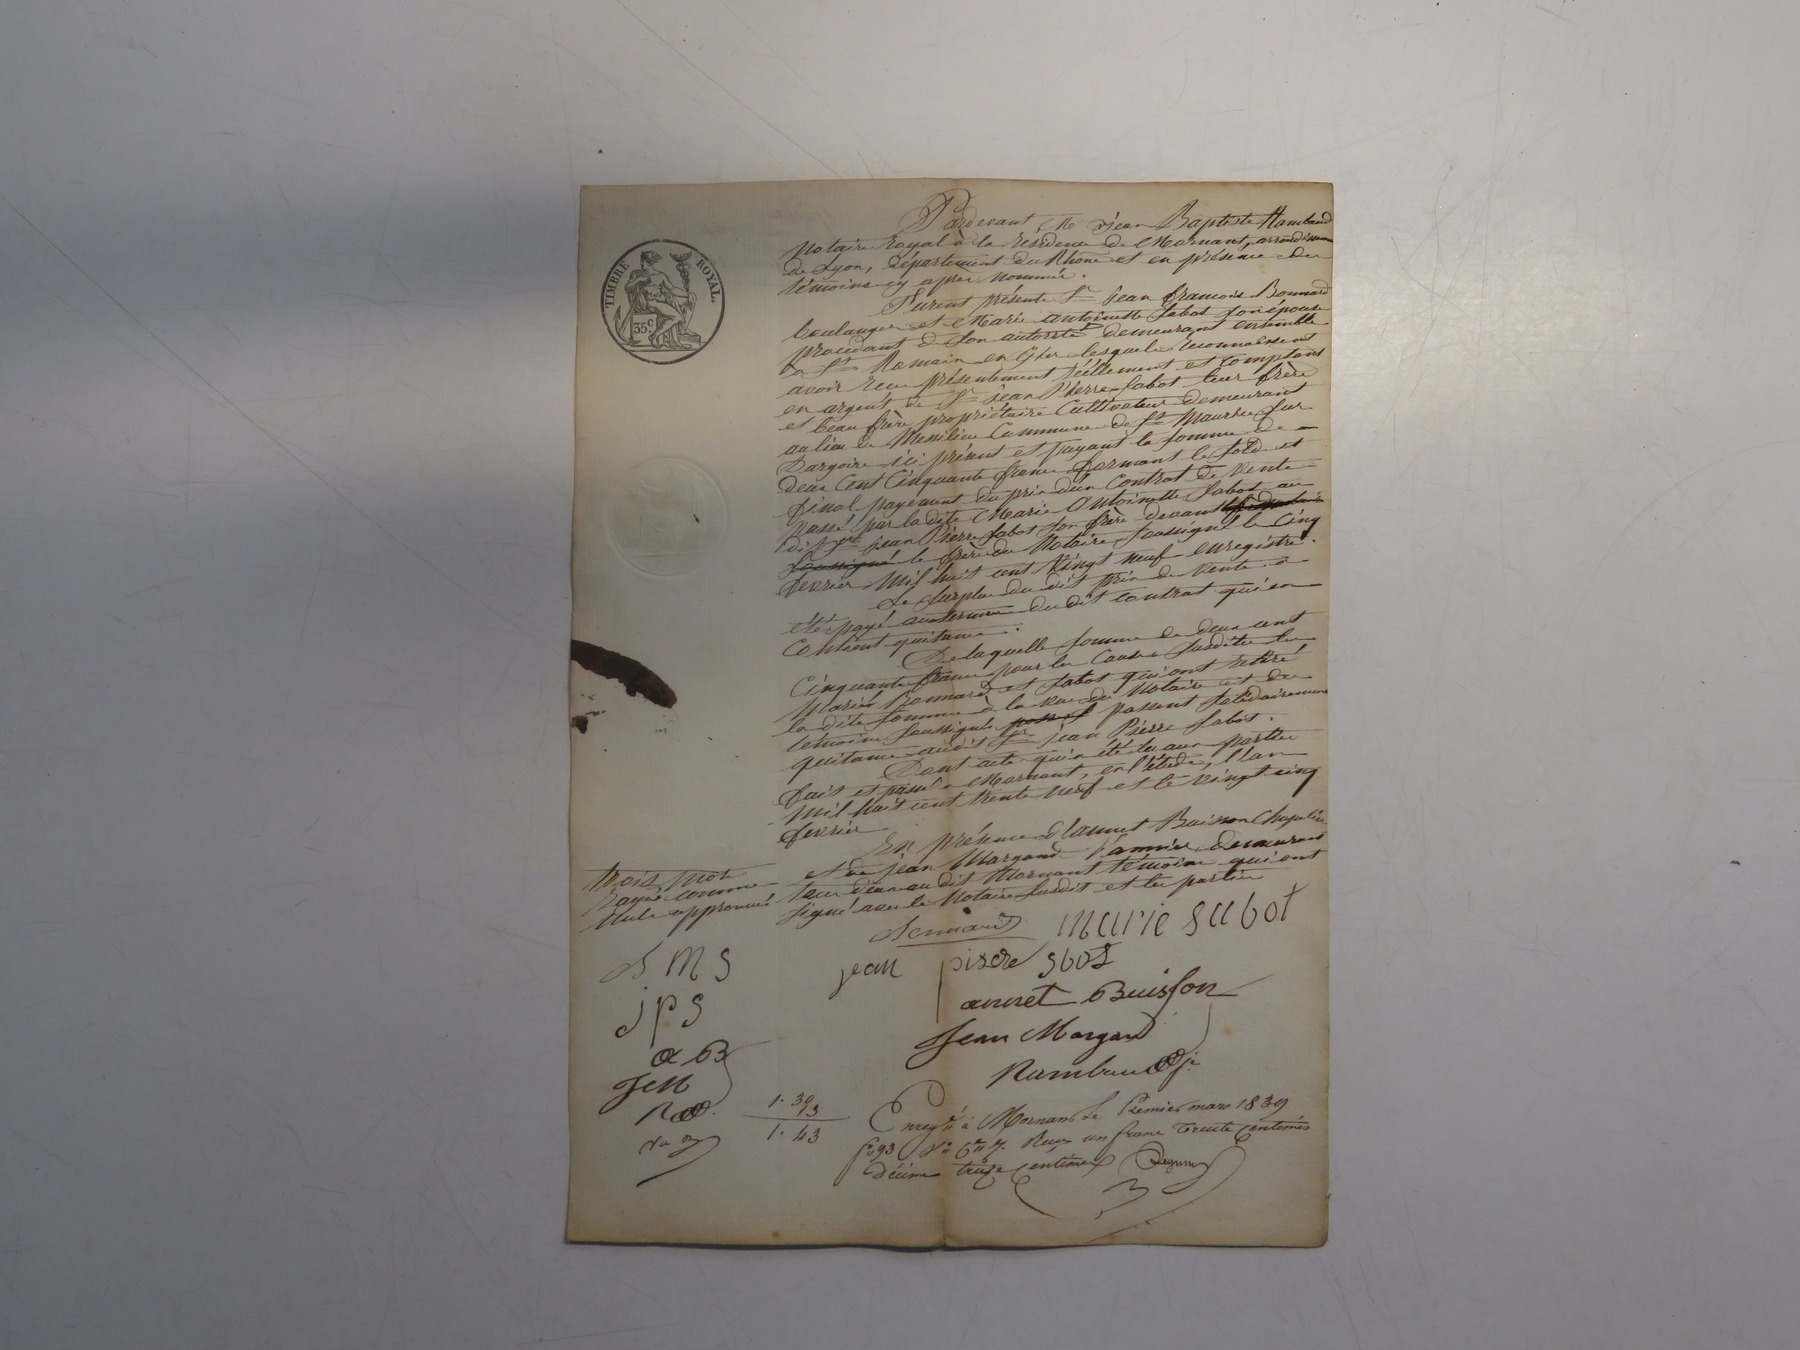 TIMBRE ROYAL.
35 c.
Pardevant Me Jean Baptiste Rambaud
Notaire Royal à la résidence de Mornant, arrondissem
de Lyon, département du Rhône et en présence des
témoins cy après nommés.
Furent présents Sr jean françois Bonnard
boulanger et Marie antoinette Sabot son épouse
procédant de son autorité demeurant ensemble
à St Romain en Gier lesquels reconnaissent
avoir reçu présentement réellement et comptant
en argent de Sr jean Pierre Sabot leur frère
et beau frère propriétaire Cultivateur demeurant
au lieu de Commune de St Maurice sur
Dargoire ici présent et payant la somme de
deux Cent Cinquante francs formant le solde et
final payement du prix d'un Contrat de vente
passé par la dite Marie Antoinette Sabot au
dit Sr jean Pierre Sabot son frère devant
soussigné le frère du Notaire soussigné le Cinq
fevrier Mil huit cent vingt neuf enregistré.
Le surplus du dit prix de vente a
été payé aux termes du dit contrat qui en
Contient quitance.
De laquelle somme de deux cent
Cinquante francs pour les Causes susdites les
Mariés Bonnard et Sabot qui ont retiré
la dite somme à la vue du Notaire et des
témoins soussignés passent solidairement
quitance audit Sr jean Pierre Sabot.
Dont acte qui a été lu aux parties
fait et passé à Mornant, en l'étude, l'an
Mil huit cent trente neuf et le vingt cinq
fevrier
En présence d'annet Buisson Chapelier
et de jean Margand demeurant
tous deux au dit Mornant témoins qui ont
signé avec le Notaire susdit et les parties
trois mots
rayés comme
nuls approuvés
Bonnard marie sabot
jean pierre sbot
annet Buisson
Jean Margand
Rambaud
MS
jPS
aB
JM
R
1. 30
13
1. 43
Enregé à Mornant le Premier mars 1839
fo 93 Vo Reçu un franc trente centimes
décime treize centimes